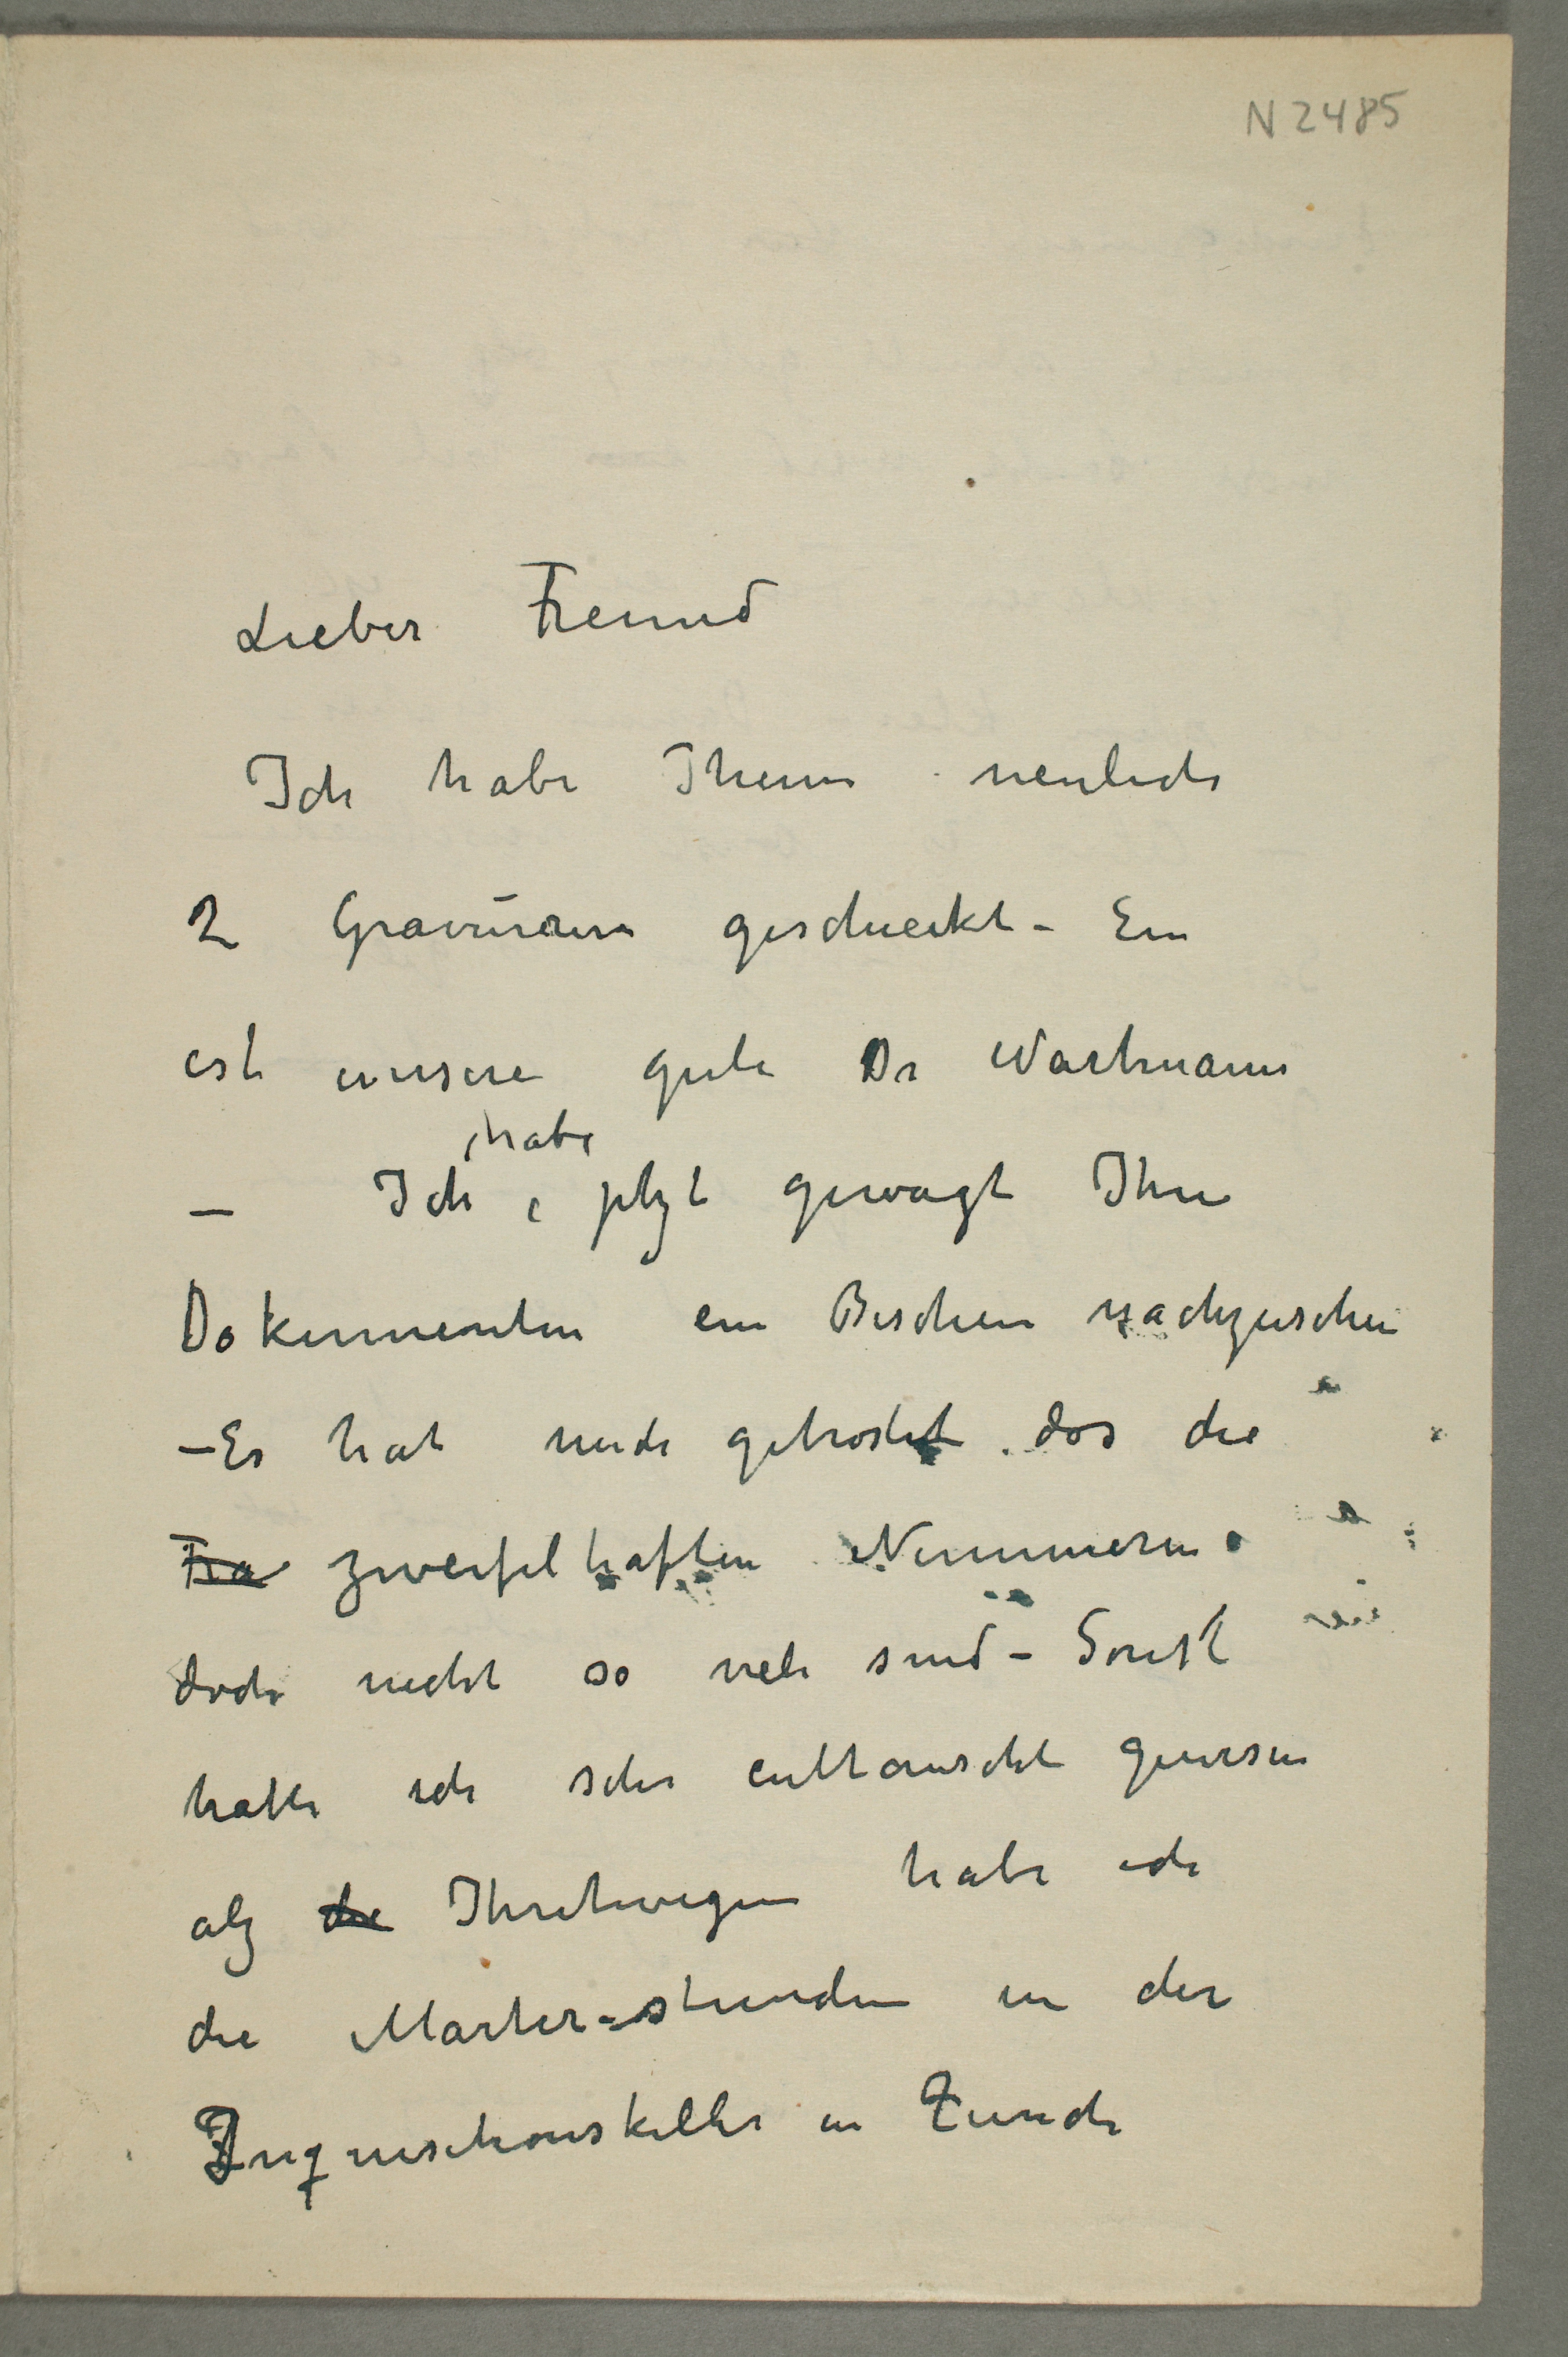 N 2485
Lieber Freund
Ich habe Ihnen neulich
2 Gravüren geschieckt – Ein
ist unsere gute Dr Wartmann
habe
– Ich jetzt gewagt Ihre
Dokumenten ein Bischen nachzusehen
– Es hat mich getröstet das die
Fra zweifelhaften Nummern
doch nicht so viele sind – Sonst
hätte ich sehr enttauscht gewesen
als die Ihretwegen habe ich
die Marter-stunden in der
Inquisitionskeller in Zurich